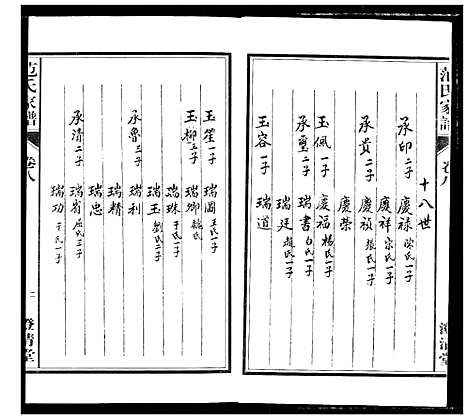 范氏家譜
卷八
澄清堂
十八世
承印二子 慶祿 陳氏一子
慶祥 宋氏一子
承貴二子 慶禎 張氏一子
慶榮
玉佩一子 慶福 楊氏一子
承璽二子 瑞書 白氏一子
瑞廷 趙氏一子
玉容一子 瑞道
玉笙一子 瑞圖 王氏一子
玉柳一子 瑞卿 魏氏
瑞珠 于氏一子
承魯三子 瑞玉 劉氏二子
瑞利
瑞精
瑞忠
承清二子 瑞省 屈氏三子
瑞功 于氏一子
范氏家譜
卷八
二
澄清堂